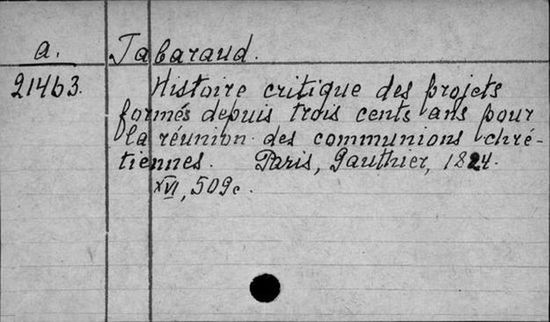 a. Tabaraud.
21463. Histoire critique des projets
formés depuis trois cents ans pour
la réunion des communions chré-
tiennes. Paris, Gauthier, 1824.
XVI, 509c.